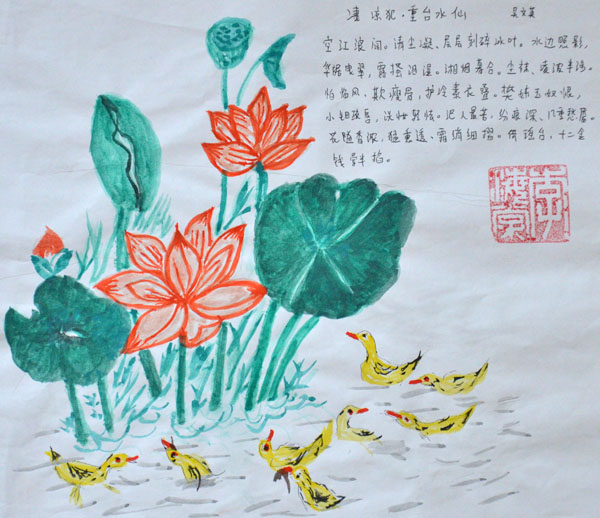 凄凉犯·重台水仙 吴文英
空江浪阔。清尘凝、层层刻碎冰叶。水边照影,
华裾曳翠,露搔泪湿。湘烟暮合。尘袜、凌波半涉。
怕临风、欺瘦骨,护冷素衣叠。樊姊玉奴恨,
小钿疏唇、洗妆轻怯。汜人最苦,粉痕深、几重愁靥。
花隘香浓,猛熏透、霜绡细摺。倚瑶台,十二金
钱晕半掐。